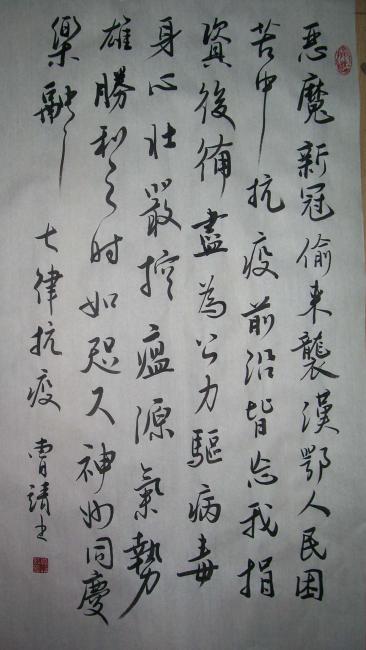 惡魔新冠偷来襲漢鄂人民困
苦中抗疫前沿皆忘我捐
資後備盡為公力驅病毒
身心壯嚴控瘟源氣勢
雄勝利之时如咫尺神州同慶
樂融々
七律抗疫 曹靖书